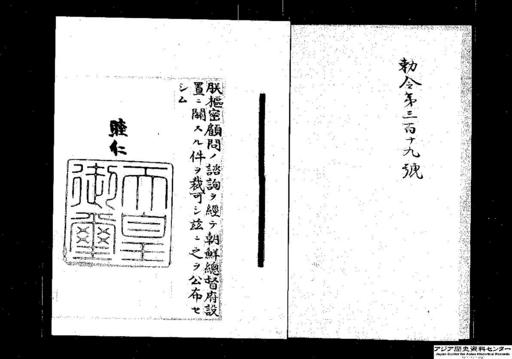 勅令第三百十九號
朕樞密顧問ノ諮詢ヲ經テ朝鮮總督府設
置ニ關スル件ヲ裁可シ茲ニ之ヲ公布セ
シム
睦仁
天皇
御璽
アジア歴史資料センター
Japan Center for Asian Historical Records